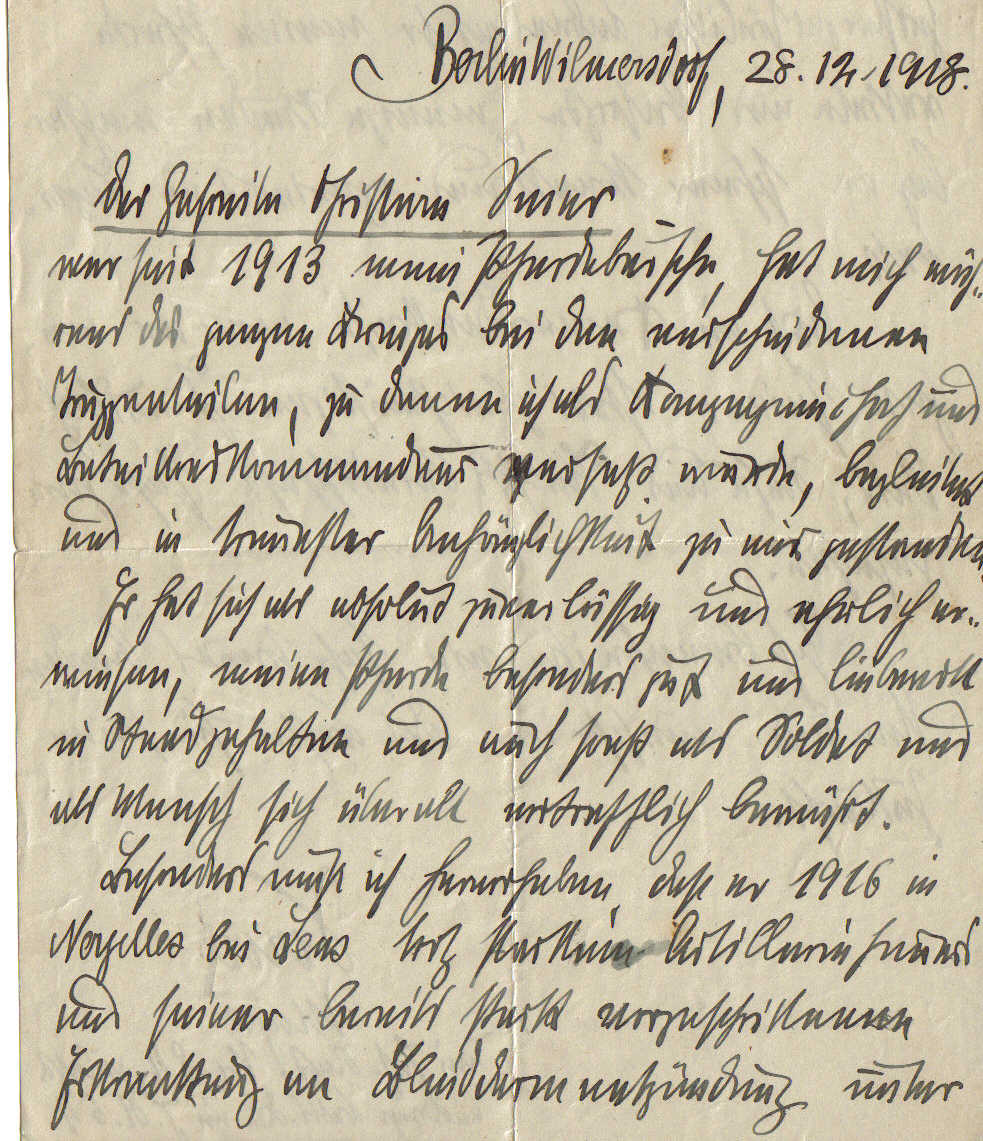 Berlin Wilmersdorf, 28.12.1918.
Der Gefreite Christian
war seit 1913 mein Pferdebursche, hat mich wäh-
rend des ganzen Krieges bei den verschiedenen
Truppenteilen, zu denen ich als Kompagniechef und
Bataillonskommandeur versetzt wurde, begleitet
und in treuester Anhänglichkeit zu mir gestanden.
Er hat sich als absolut zuverlässig und ehrlich er-
wiesen, meine Pferde besonders gut und liebevoll
in Stand gehalten und auch sonst als Soldat und
als Mensch sich überall vortrefflich bewährt.
Besonders muß ich hervorheben, daß er 1916 in
Noyelles bei Lens trotz starken Artilleriefeuers
und seiner bereits stark vorgeschrittenen
Erkrankung an Blinddarmentzündung unter